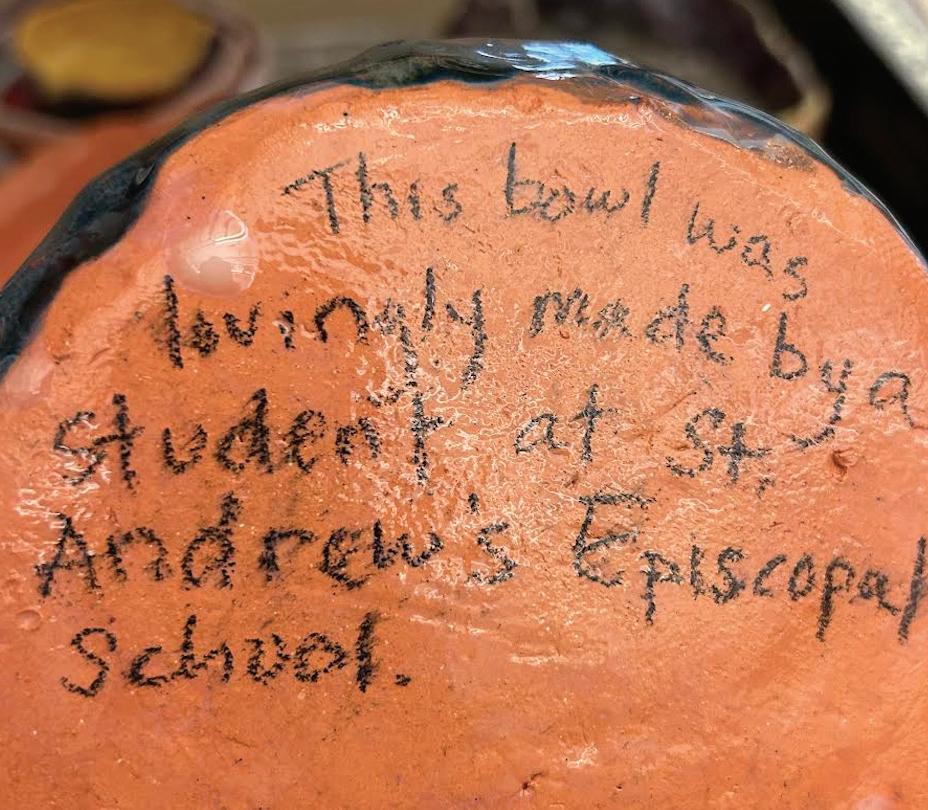 This bowl was
lovingly made by a
student at St.
Andrew's Episcopal
School.